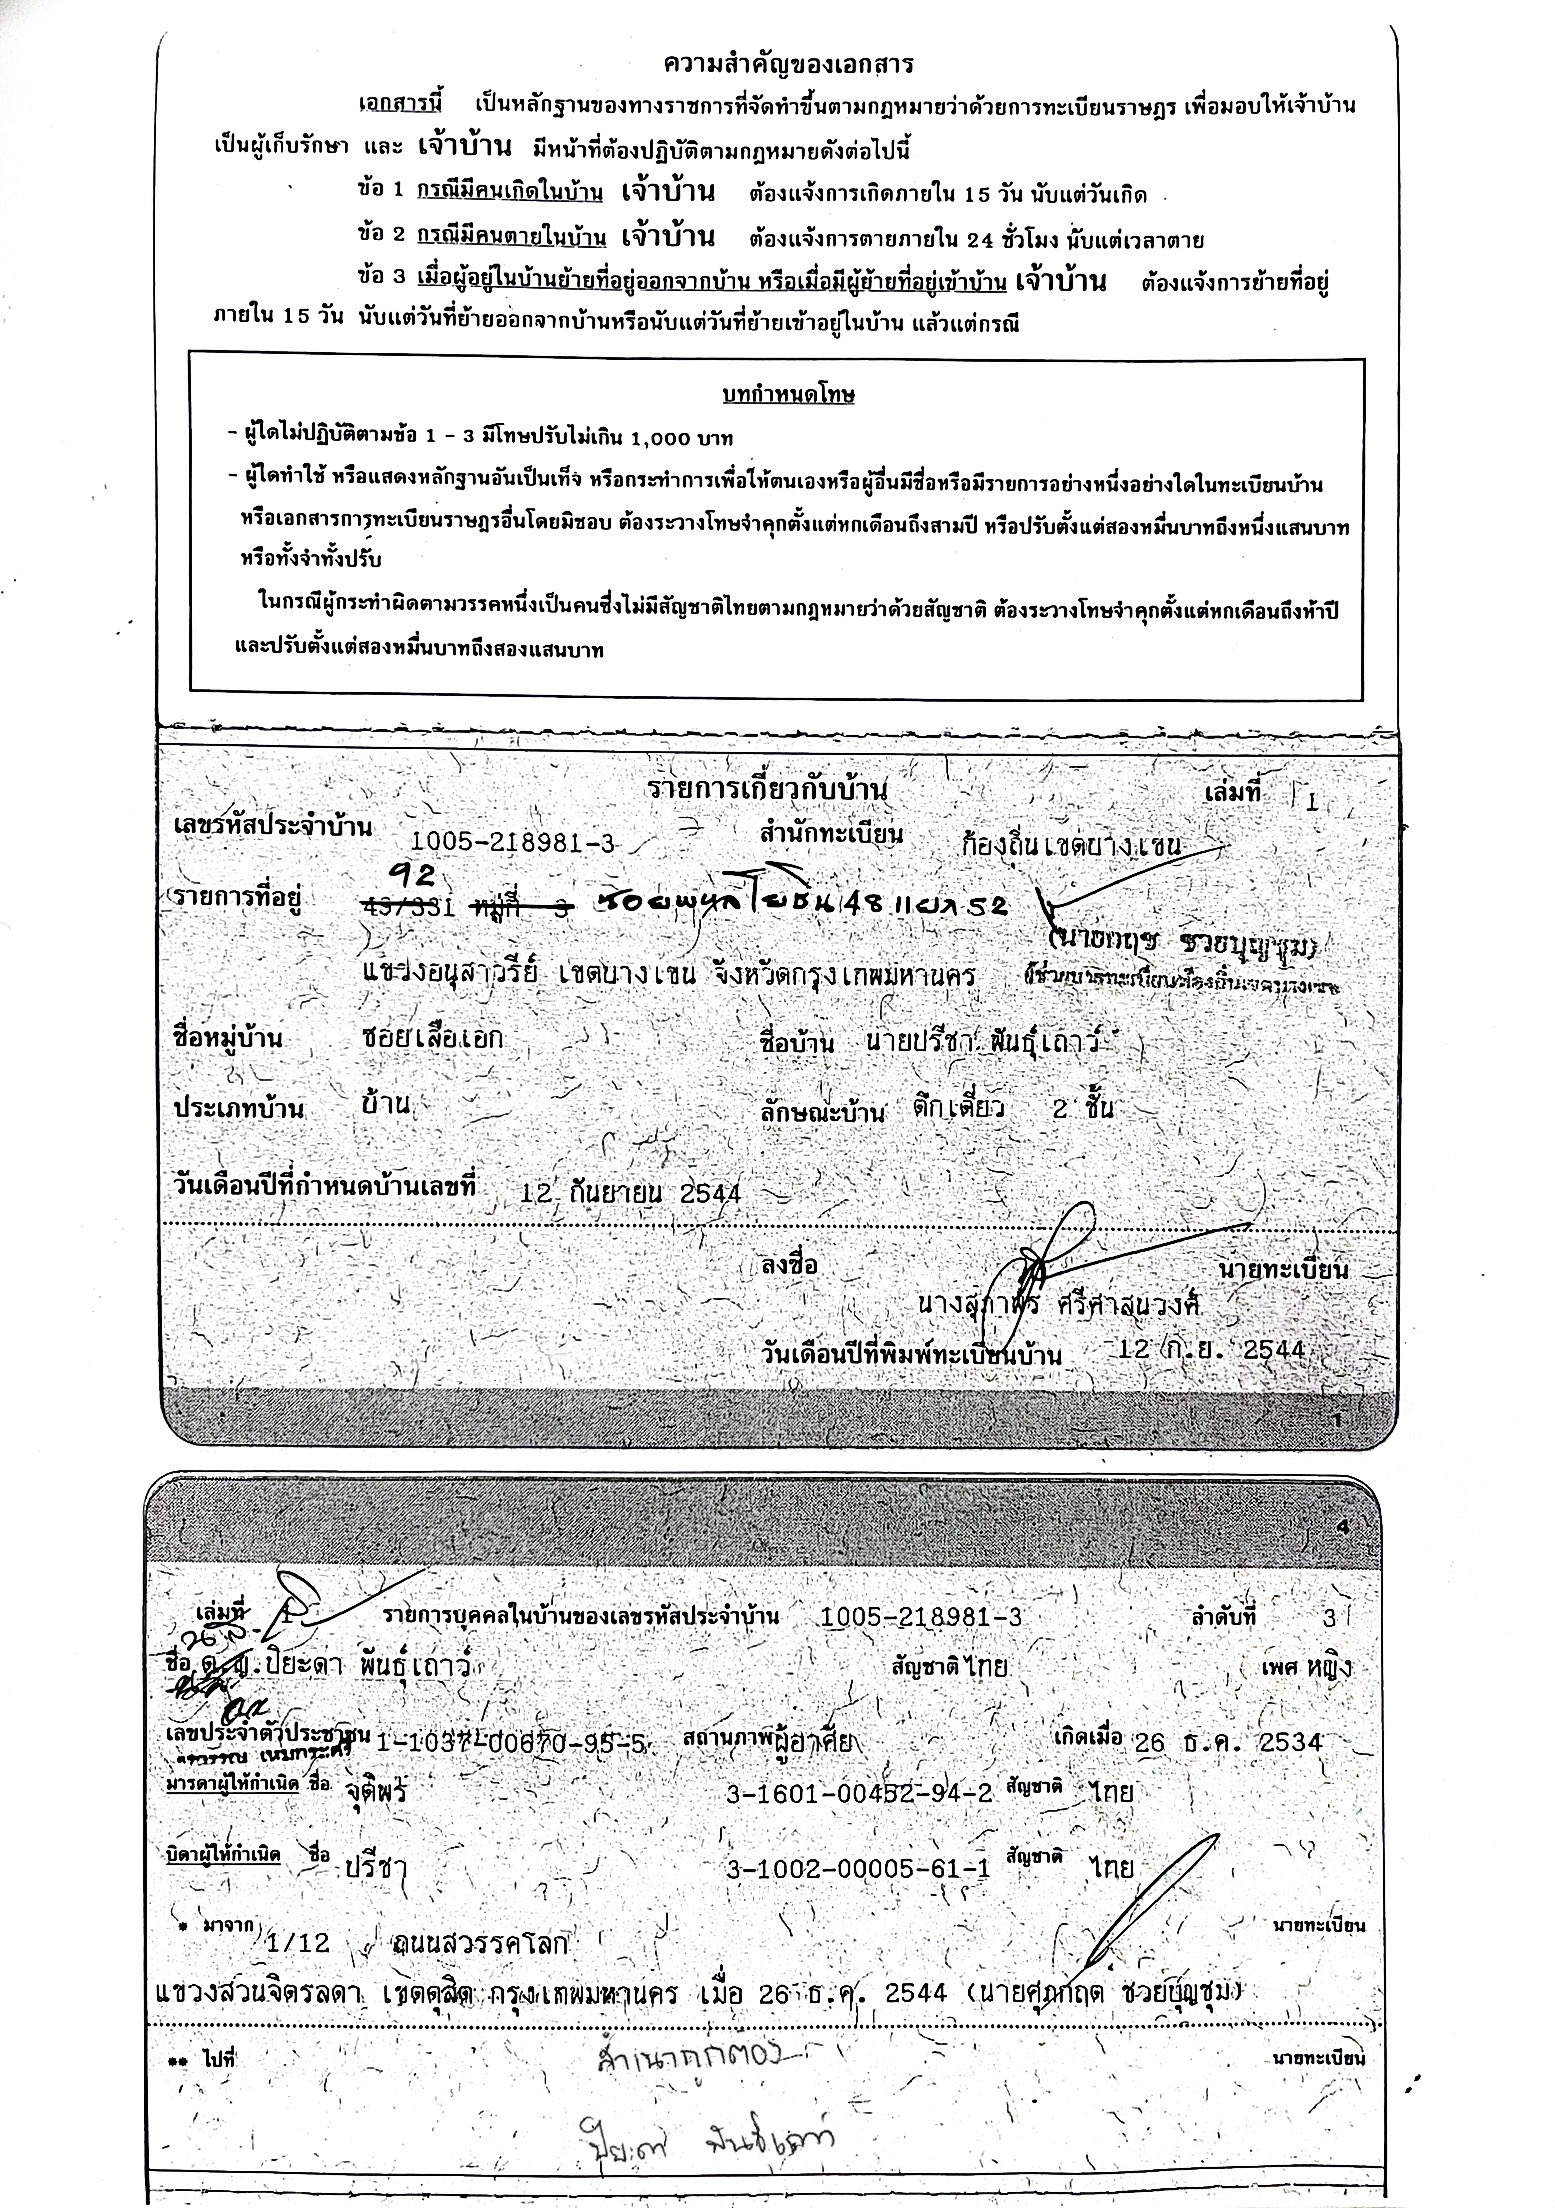 ความสำคัญของเอกสาร
เอกสารนี้ เป็นหลักฐานของทางราชการที่จัดทำขึ้นตามกฎหมายว่าด้วยการทะเบียนราษฎร เพื่อมอบให้เจ้าบ้าน
เป็นผู้เก็บรักษา และ เจ้าบ้าน มีหน้าที่ต้องปฏิบัติตามกฎหมายดังต่อไปนี้
ข้อ 1 กรณีมีคนเกิดในบ้าน เจ้าบ้าน ต้องแจ้งการเกิดภายใน 15 วัน นับแต่วันเกิด
ข้อ 2 กรณีมีคนตายในบ้าน เจ้าบ้าน ต้องแจ้งการตายภายใน 24 ชั่วโมง นับแต่เวลาตาย
ข้อ 3 เมื่อผู้อยู่ในบ้านย้ายที่อยู่ออกจากบ้าน หรือเมื่อมีผู้ย้ายที่อยู่เข้าบ้าน เจ้าบ้าน ต้องแจ้งการย้ายที่อยู่
ภายใน 15 วัน นับแต่วันที่ย้ายออกจากบ้านหรือนับแต่วันที่ย้ายเข้าอยู่ในบ้าน แล้วแต่กรณี
บทกำหนดโทษ
- ผู้ใดไม่ปฏิบัติตามข้อ 1 - 3 มีโทษปรับไม่เกิน 1,000 บาท
- ผู้ใดทำใช้ หรือแสดงหลักฐานอันเป็นเท็จ หรือกระทำการเพื่อให้ตนเองหรือผู้อื่นมีชื่อหรือมีรายการอย่างหนึ่งอย่างใดในทะเบียนบ้าน
หรือเอกสารการทะเบียนราษฎรอื่นโดยมิชอบ ต้องระวางโทษจำคุกตั้งแต่หกเดือนถึงสามปี หรือปรับตั้งแต่สองหมื่นบาทถึงหนึ่งแสนบาท
หรือทั้งจำทั้งปรับ
ในกรณีผู้กระทำผิดตามวรรคหนึ่งเป็นคนซึ่งไม่มีสัญชาติไทยตามกฎหมายว่าด้วยสัญชาติ ต้องระวางโทษจำคุกตั้งแต่หกเดือนถึงห้าปี
และปรับตั้งแต่สองหมื่นบาทถึงสองแสนบาท
รายการเกี่ยวกับบ้าน เล่มที่ 1
เลขรหัสประจำบ้าน 1005-218981-3 สำนักทะเบียน ท้องถิ่นเขตบางเขน
92
รายการที่อยู่ 43/331 หมู่ที่ 3 ซอยพหลโยธิน 48 แยก 52
(นายกฤช ชวยบุญชุม)
แขวงอนุสาวรีย์ เขตบางเขน จังหวัดกรุงเทพมหานคร ผู้ช่วยนายทะเบียนท้องถิ่นเขตบางเขน
ชื่อหมู่บ้าน ซอยเสือเอก ชื่อบ้าน นายปรีชา พันธุ์เถาว์
ประเภทบ้าน บ้าน ลักษณะบ้าน ตึกเดี่ยว 2 ชั้น
วันเดือนปีที่กำหนดบ้านเลขที่ 12 กันยายน 2544
ลงชื่อ นายทะเบียน
นางสุภาพร ศรีศาสนวงศ์
วันเดือนปีที่พิมพ์ทะเบียนบ้าน 12 ก.ย. 2544
1
4
เล่มที่ 1 รายการบุคคลในบ้านของเลขรหัสประจำบ้าน 1005-218981-3 ลำดับที่ 3
น.ส.
ชื่อ ด.ญ.ปิยะดา พันธุ์เถาว์ สัญชาติ ไทย เพศ หญิง
เลขประจำตัวประชาชน 1-1037-00870-95-5 สถานภาพ ผู้อาศัย เกิดเมื่อ 26 ธ.ค. 2534
มารดาผู้ให้กำเนิด ชื่อ จุติพร 3-1601-00452-94-2 สัญชาติ ไทย
บิดาผู้ให้กำเนิด ชื่อ ปรีชา 3-1002-00005-61-1 สัญชาติ ไทย
* มาจาก 1/12 ถนนสวรรคโลก นายทะเบียน
แขวงสวนจิตรลดา เขตดุสิต กรุงเทพมหานคร เมื่อ 26 ธ.ค. 2544 (นายศุภกฤต ชวยบุญชุม)
** ไปที่ สำเนาถูกต้อง นายทะเบียน
ปิยะดา พันธุ์เถาว์